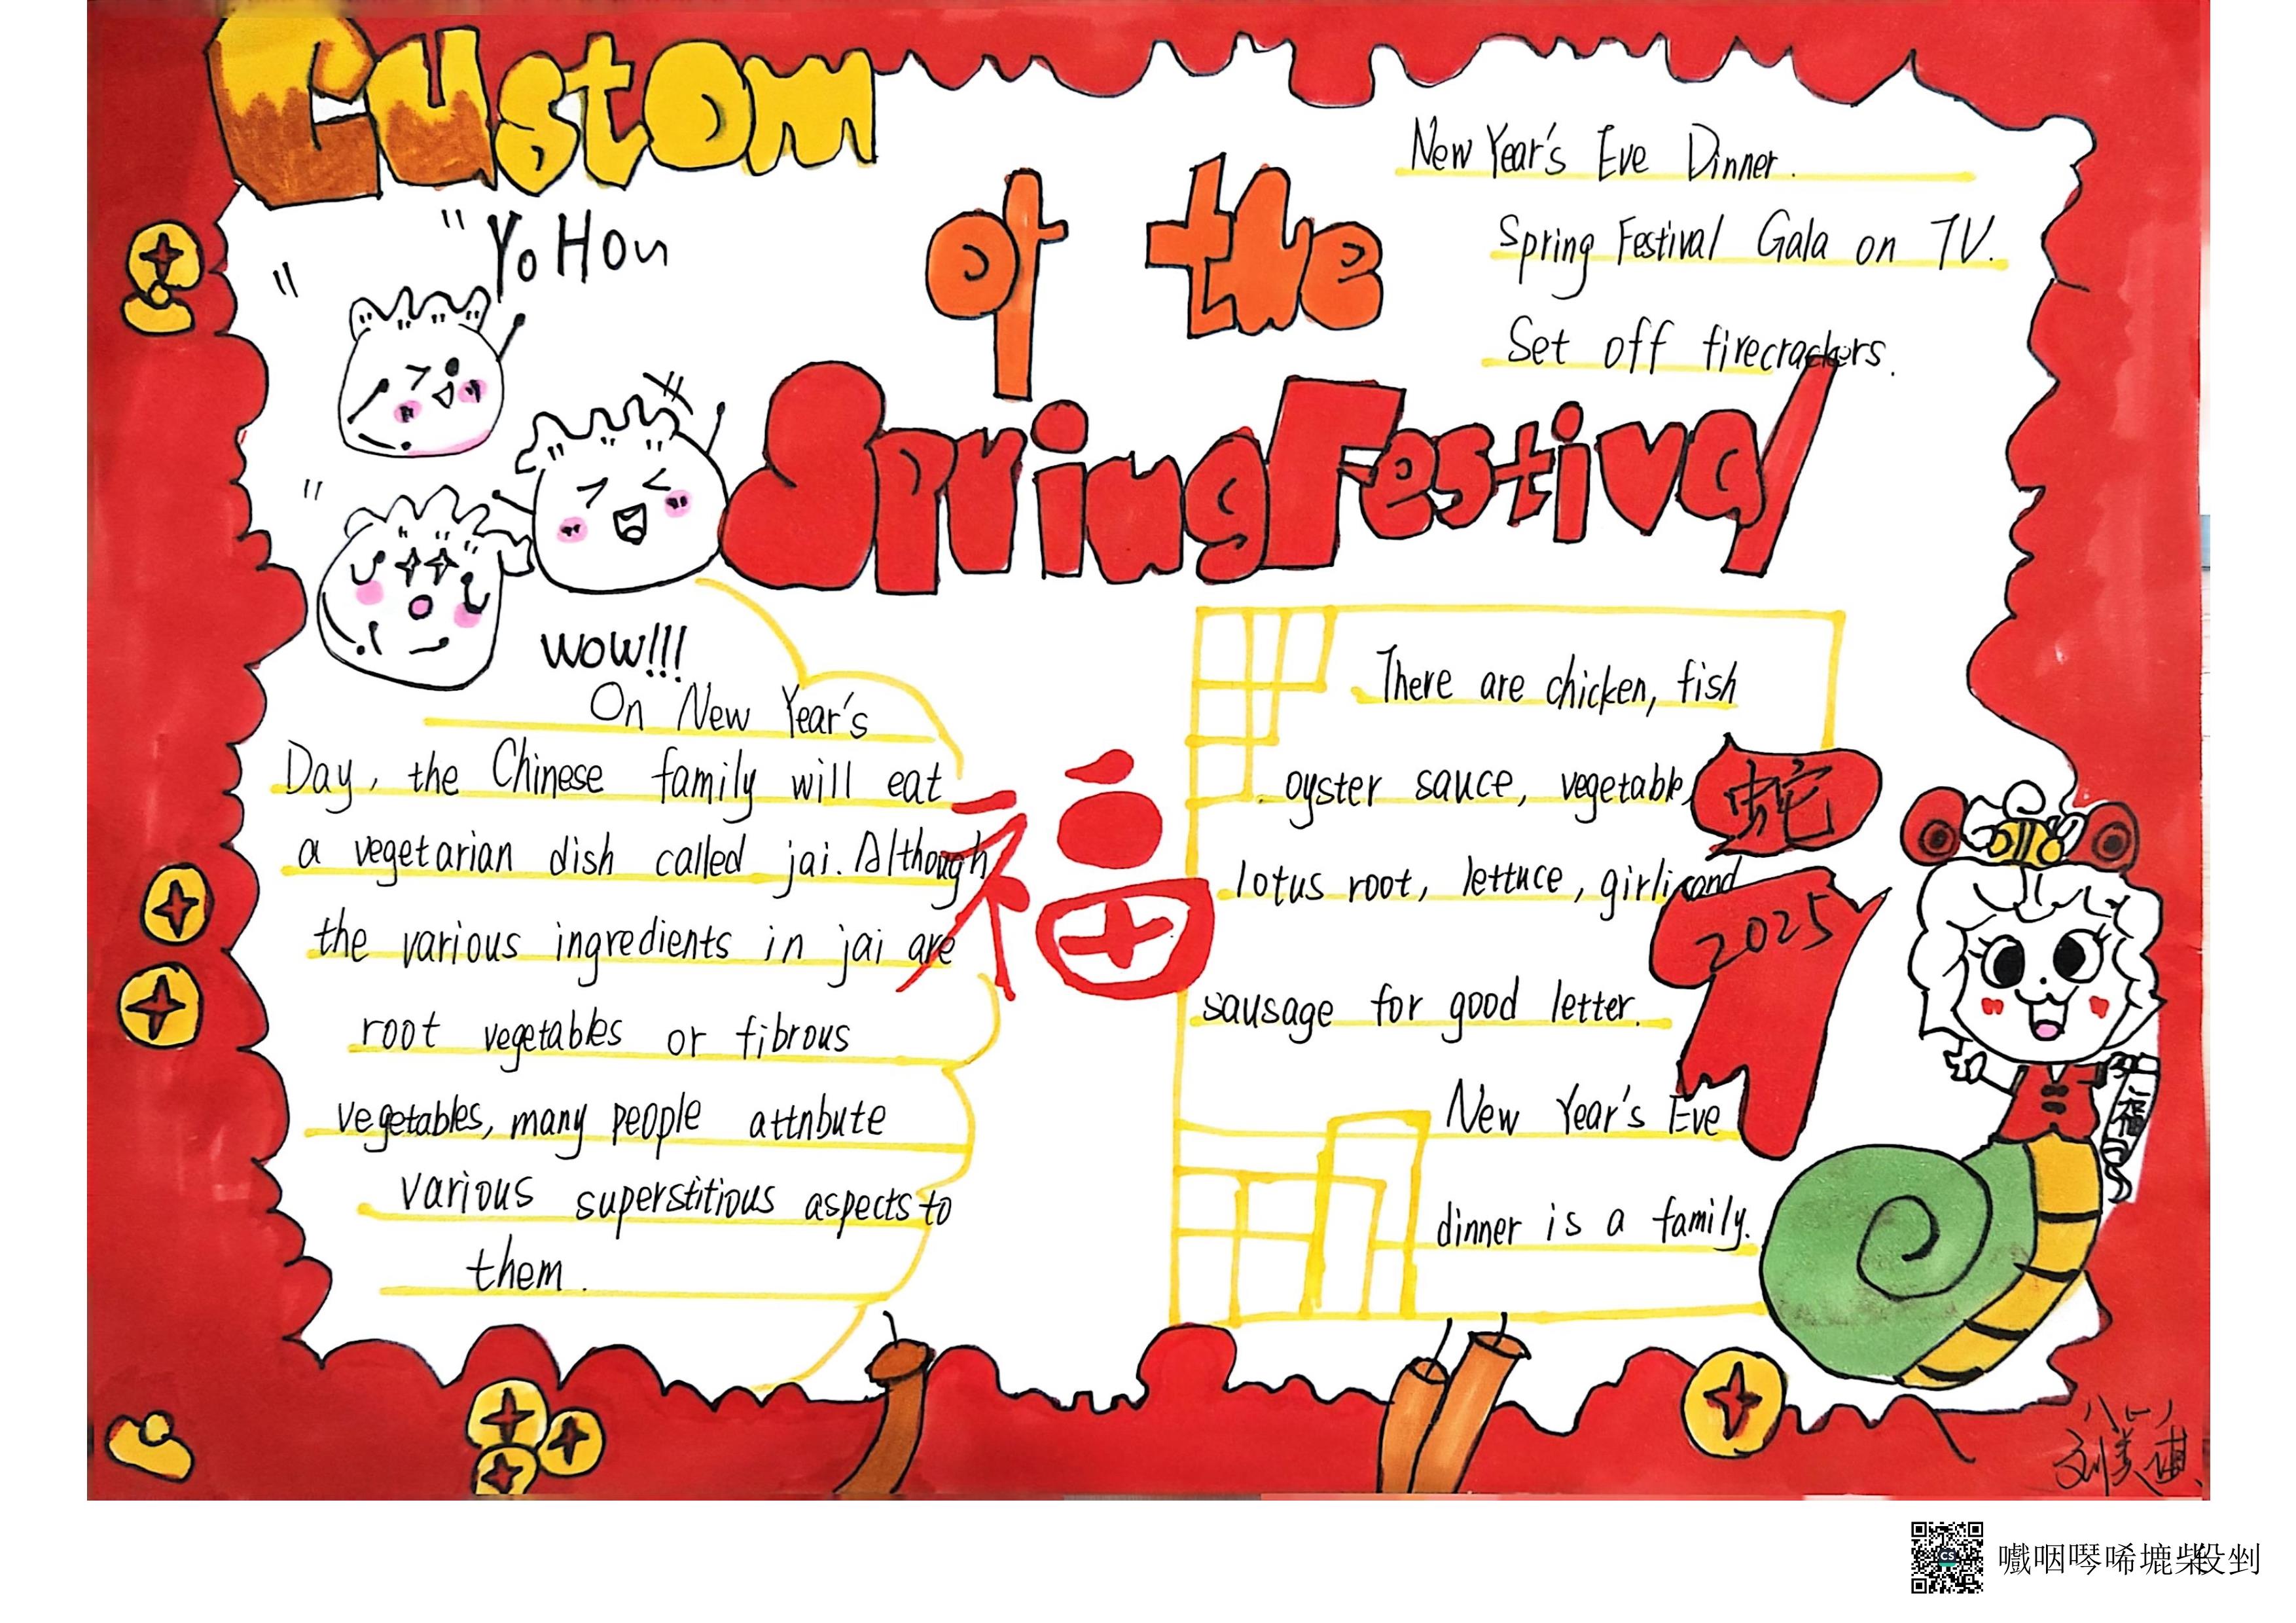 Custom
of the
Spring Festival
"YoHou
wow!!!
New Year's Eve Dinner.
Spring Festival Gala on TV.
Set off firecrackers.
On New Year's
Day, the Chinese family will eat
a vegetarian dish called jai. Although
the various ingredients in jai are
root vegetables or fibrous
vegetables, many people attribute
various superstitious aspects to
them.
福
There are chicken, fish
oyster sauce, vegetable,
lotus root, lettuce, girlic and
sausage for good letter.
New Year's Eve
dinner is a family.
蛇
2025
福
刘美琪
嚱咽噖唏摝柴投剉